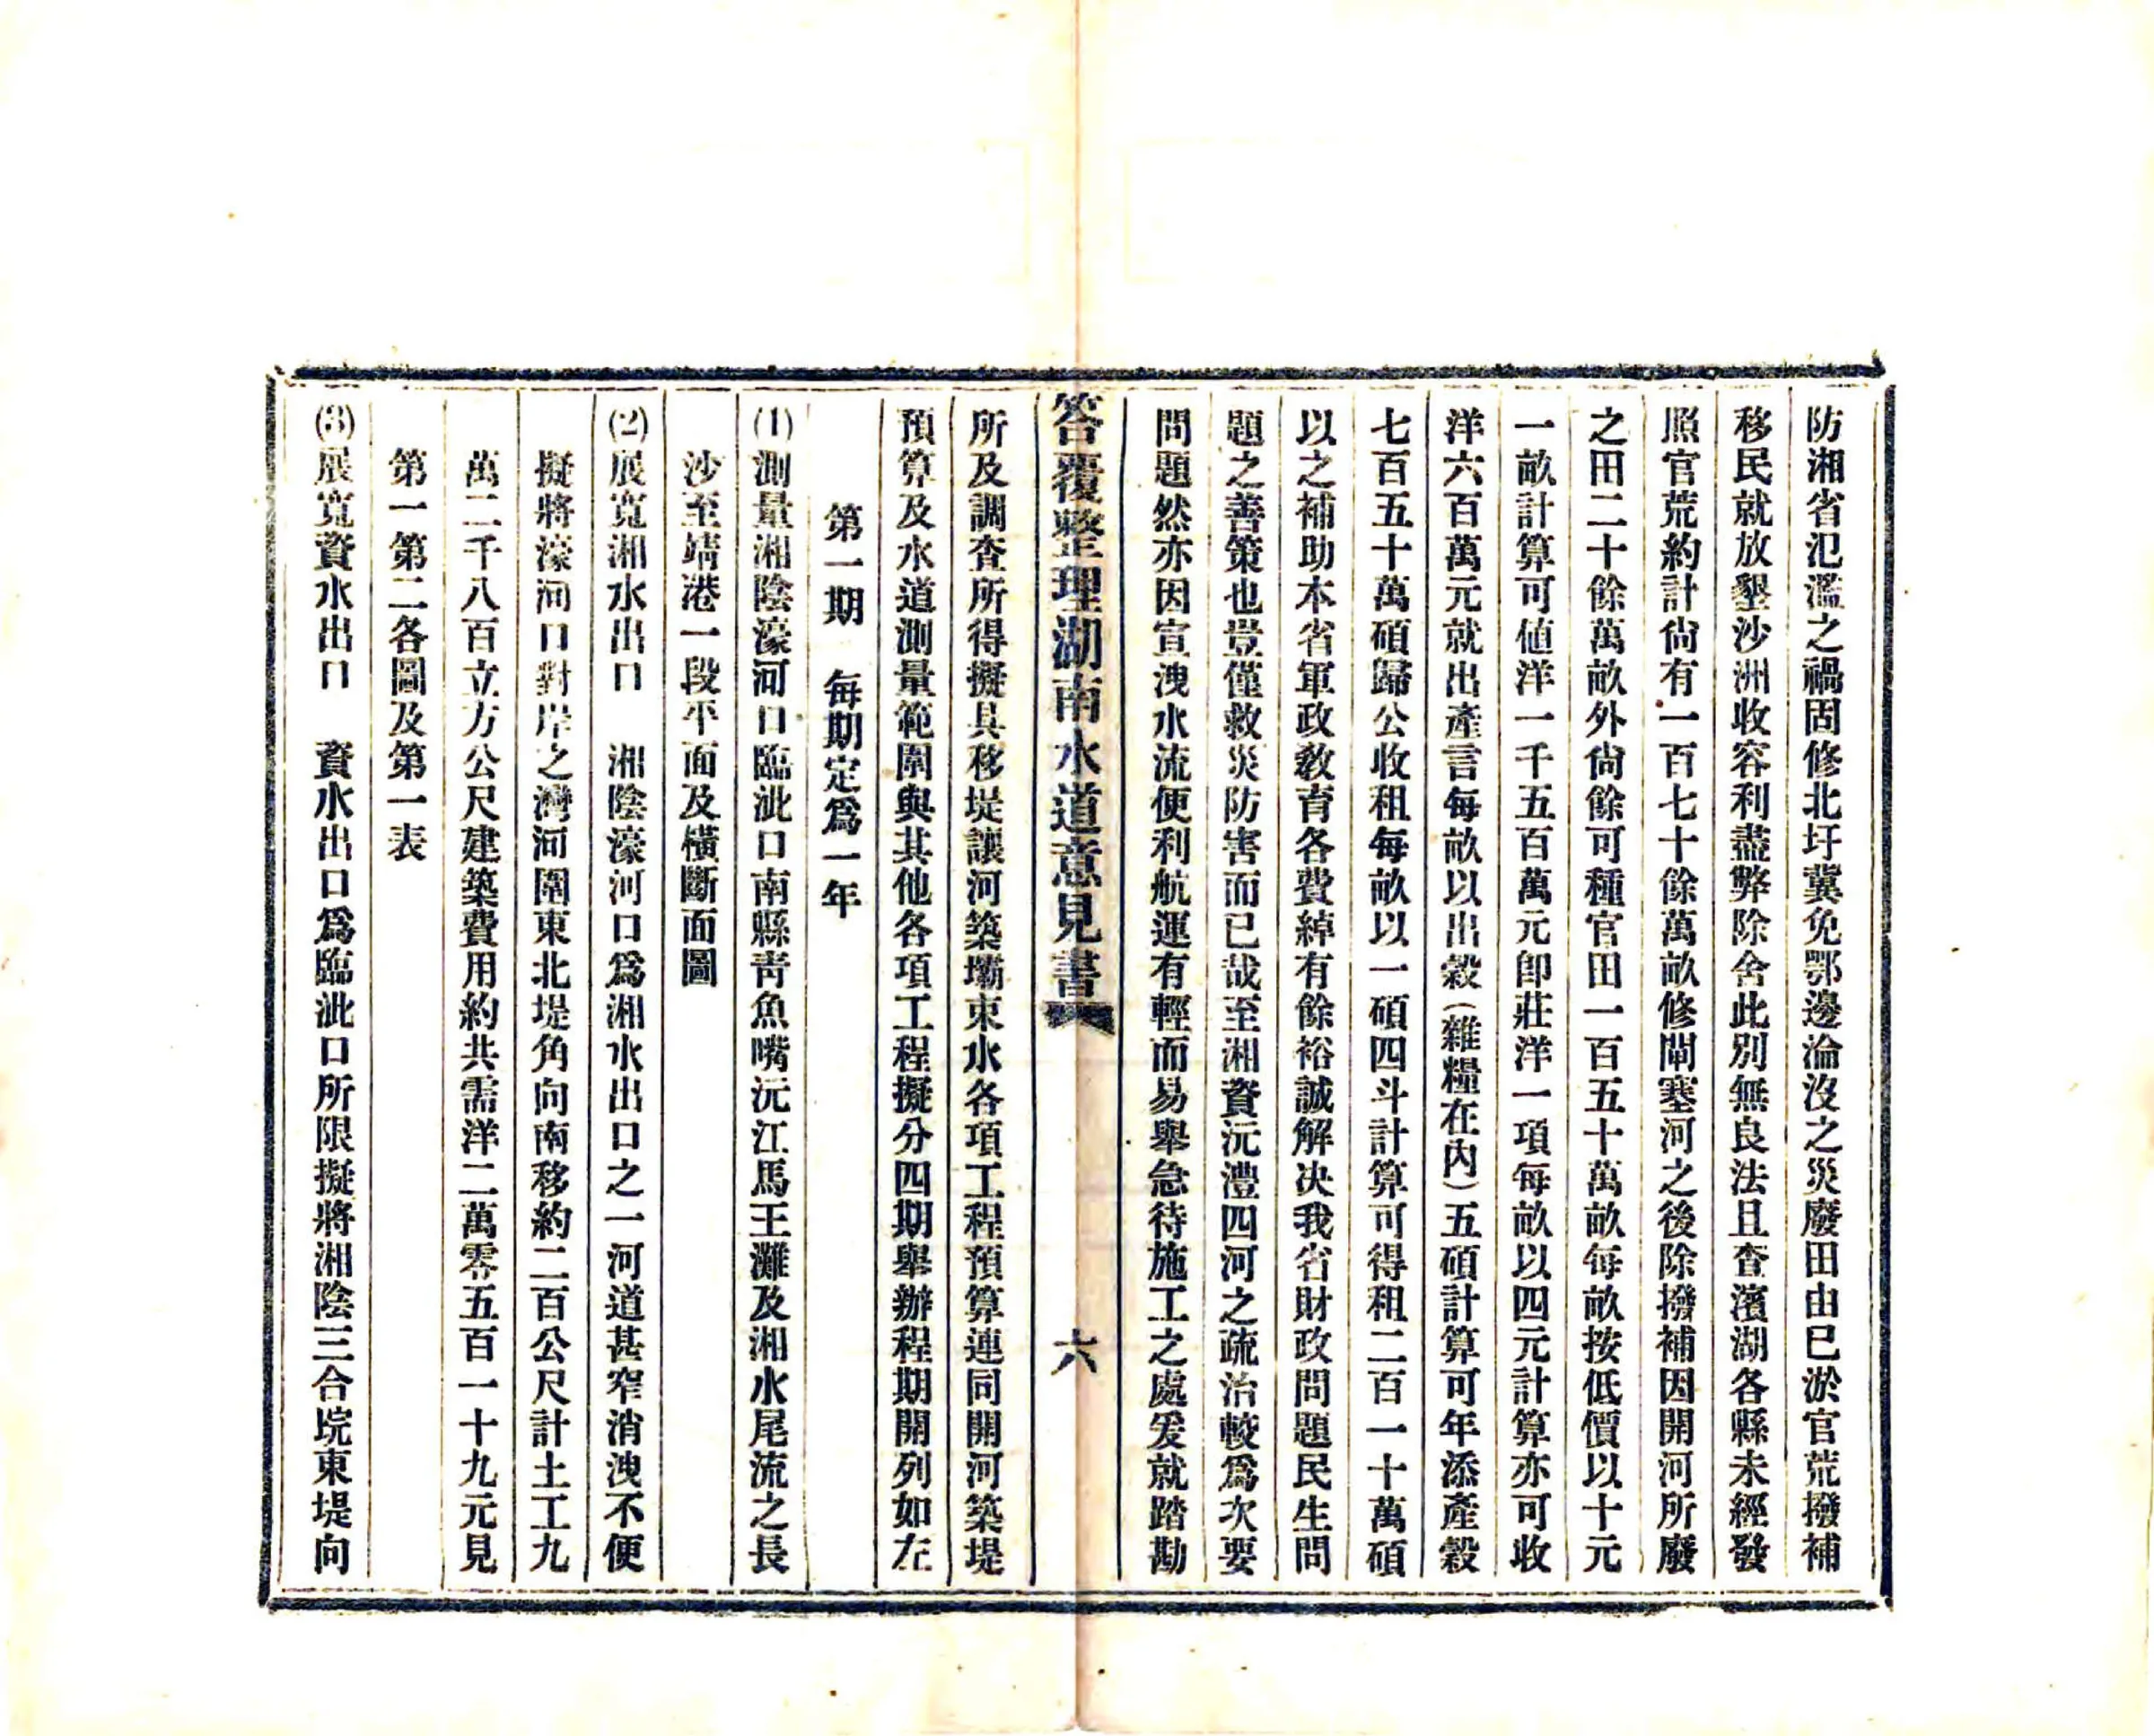 防湘省氾濫之禍固修北圩冀免鄂邊淪沒之災廢田由已淤官荒撥補
移民就放墾沙洲收容利盡弊除舍此別無良法且查濱湖各縣未經發
照官荒約計尙有一百七十餘萬畝修閘塞河之後除撥補因開河所廢
之田二十餘萬畝外尙餘可種官田一百五十萬畝每畝按低價以十元
一畝計算可值洋一千五百萬元卽莊洋一項每畝以四元計算亦可收
洋六百萬元就出產言每畝以出穀（雜糧在內）五碩計算可年添產穀
七百五十萬碩歸公收租每畝以一碩四斗計算可得租二百一十萬碩
以之補助本省軍政教育各費綽有餘裕誠解决我省財政問題民生問
題之善策也豈僅救災防害而已哉至湘資沅澧四河之疏治較爲次要
問題然亦因宣洩水流便利航運有輕而易舉急待施工之處爰就踏勘
答覆整理湖南水道意見書
六
所及調查所得擬具移堤讓河築壩束水各項工程預算連同開河築堤
預算及水道測量範圍與其他各項工程擬分四期舉辦程期開列如左
第一期　每期定爲一年
(1)測量湘陰濠河口臨泚口南縣靑魚嘴沅江馬王灘及湘水尾流之長
沙至靖港一段平面及橫斷面圖
(2)展寬湘水出口　湘陰濠河口爲湘水出口之一河道甚窄消洩不便
擬將濠河口對岸之灣河圍東北堤角向南移約二百公尺計土工九
萬二千八百立方公尺建築費用約共需洋二萬零五百一十九元見
第一第二各圖及第一表
(3)展寬資水出口　資水出口爲臨泚口所限擬將湘陰三合垸東堤向